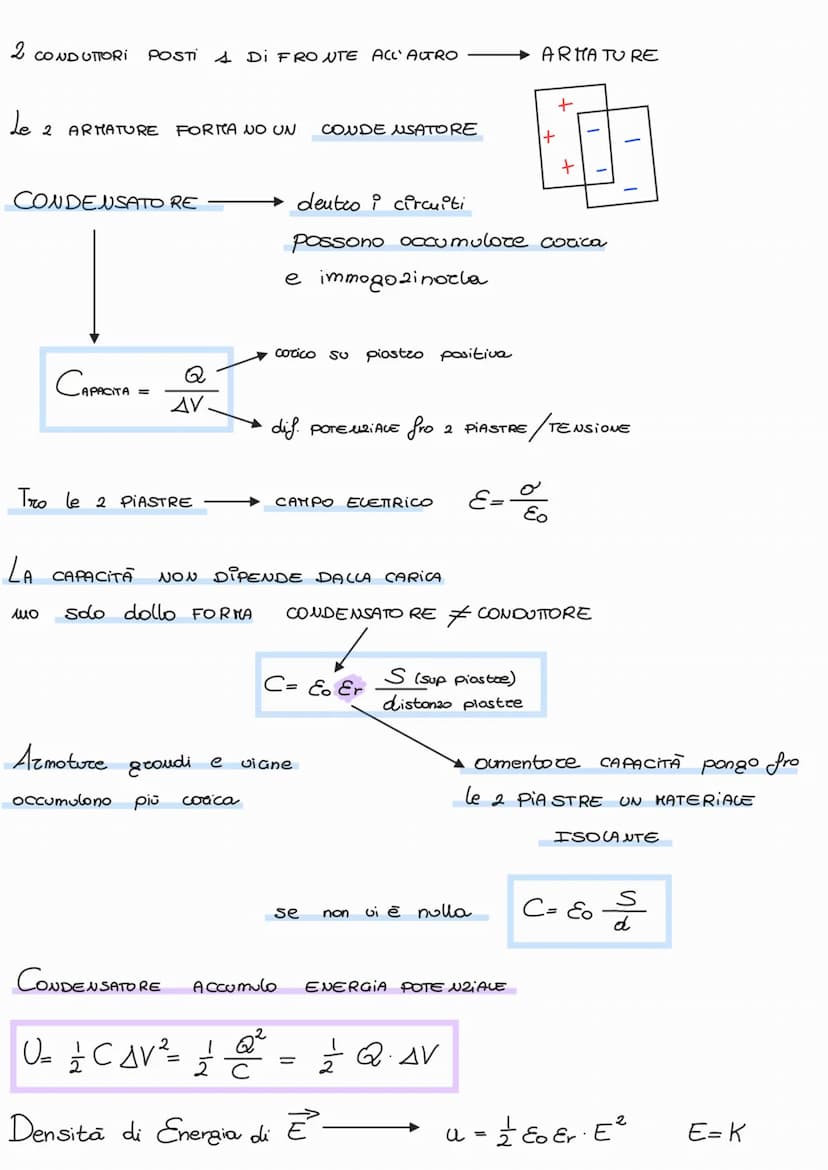 2 CONDUTTORI POSTI 1 DI FRONTE ALL'ALTRO → ARMATURE
Le 2 ARMATURE FORMANO UN CONDENSATORE
+ + + − − − −
CONDENSATORE → dentro i circuiti
possono accumulare carica
e immagazinarla
CAPACITÀ = Q / ΔV
carica su piastra positiva
dif. POTENZIALE fra 2 PIASTRE / TENSIONE
Tra le 2 PIASTRE → CAMPO ELETTRICO E = σ / ε0
LA CAPACITÀ NON DIPENDE DALLA CARICA
ma solo dalla FORMA CONDENSATORE ≠ CONDUTTORE
C = ε0 εr S (sup piastre) / distanza piastre
Armature grandi e vicine → aumentare CAPACITÀ pongo fra
accumulano più carica le 2 PIASTRE UN MATERIALE
ISOLANTE
se non vi è nulla C = ε0 S / d
CONDENSATORE ACCUMULO ENERGIA POTENZIALE
U = 1/2 C ΔV² = 1/2 Q²/C = 1/2 Q · ΔV
Densità di Energia di E⃗ → u = 1/2 ε0 εr · E² E = K